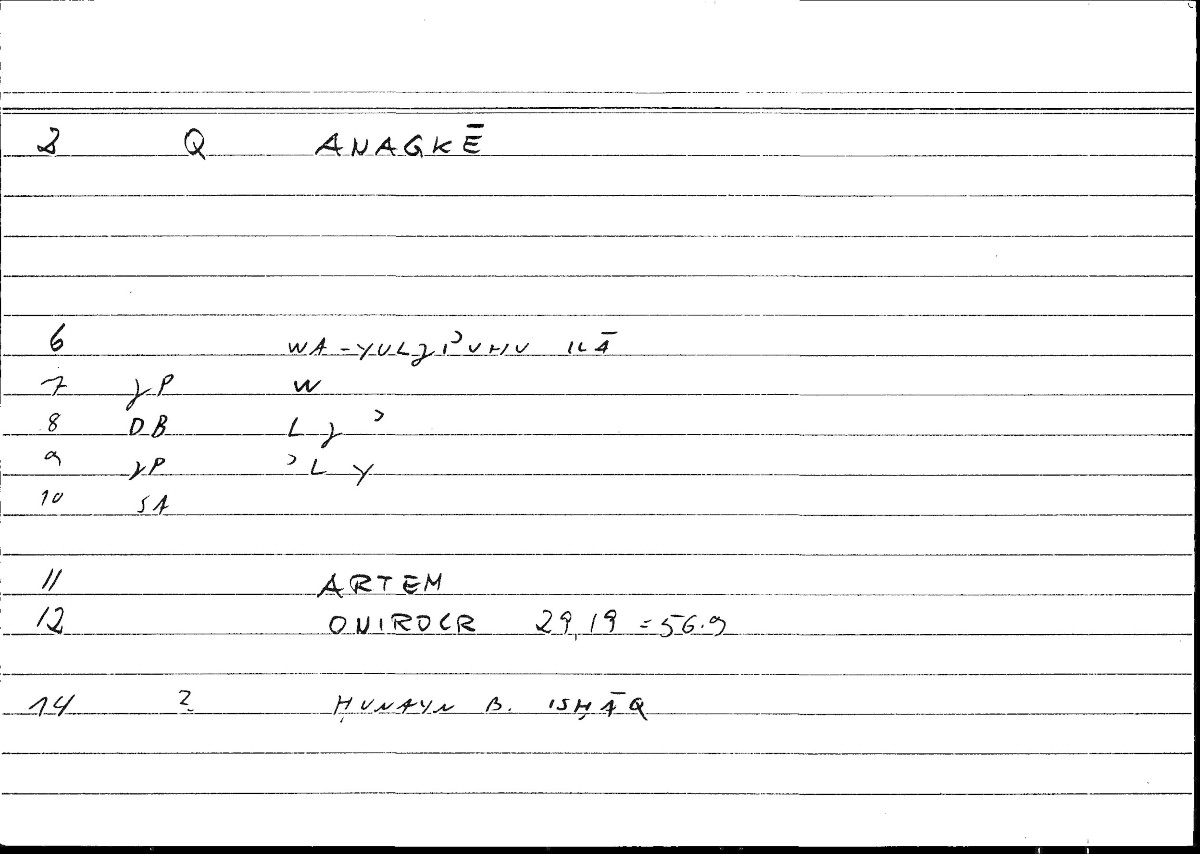 2 Q ANAGKĒ
6 WA-YULǧIʾUHU ILĀ
7 ǧP W
8 DB L ǧ ʾ
9 ǧP ʾL Y
10 SA
11 ARTEM
12 ONIROCR 29,19 = 56.9
14 2 ḤUNAYN B. ISḤĀQ